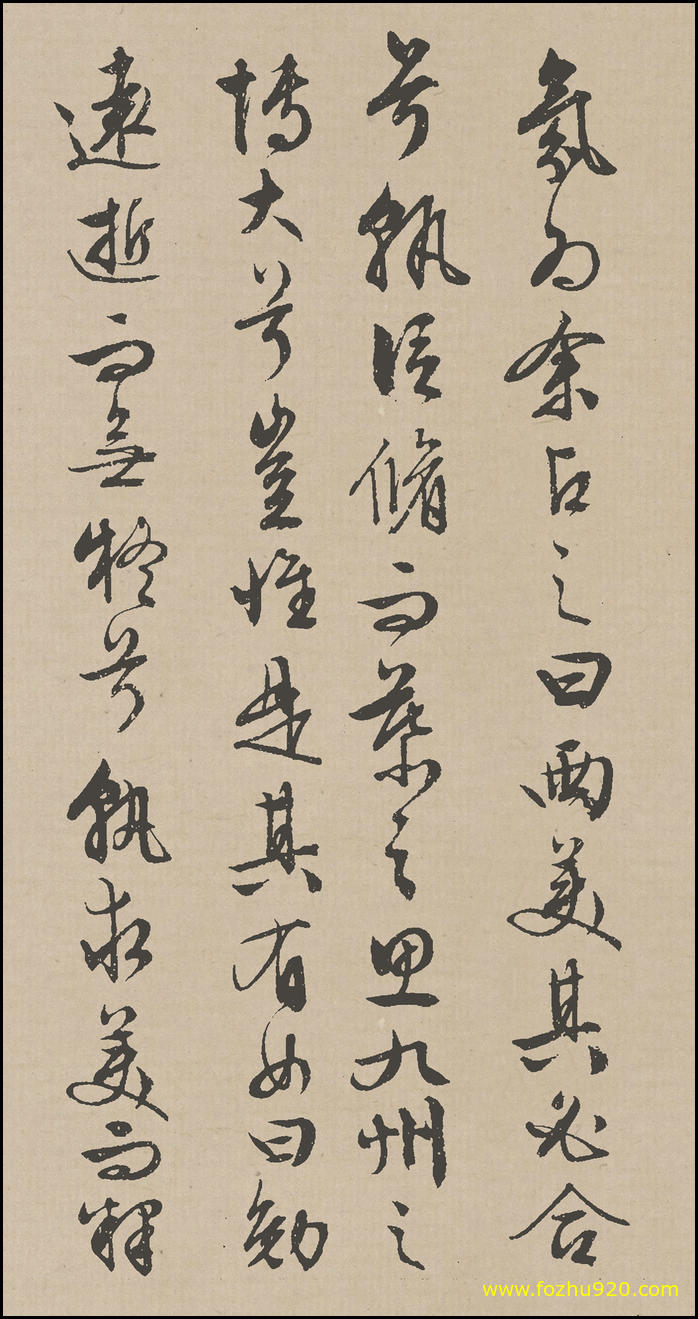 氛為余占之曰兩美其必合
兮孰信脩而慕之思九州之
博大兮豈惟是其有女曰勉
遠逝而無疑兮孰求美而釋
www.fozhu920.com